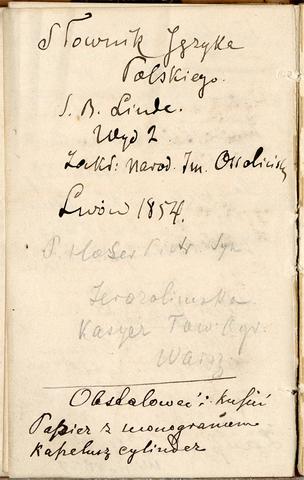 Słownik Języka
Polskiego.
S. B. Linde.
Wyd 2.
Zakł: Narod. Im. Ossolińsk
Lwów 1854.
P. Piotr
Jerozolimska
Kasyer Tow. Agr.
Warsz.
Obstalować i kupić
Papier z monogramem
Kapelusz cylinder